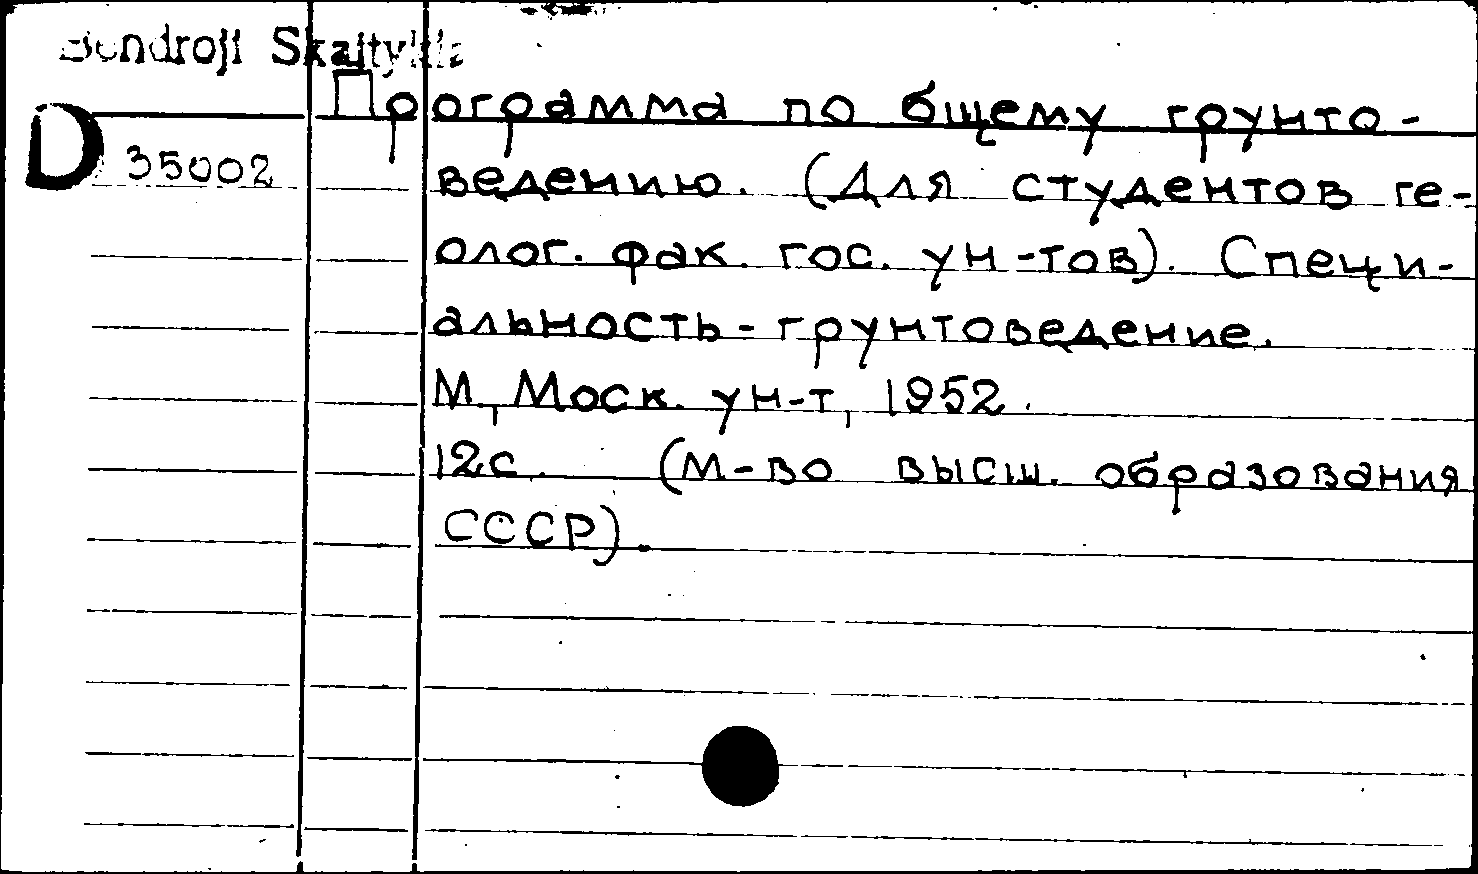 Bendroji Skaitykla
Программа по бщему грунто-
D 35002
ведению. (Для студентов ге-
олог. фак. гос. ун-тов). Специ-
альность-грунтоведение.
М., Моск. ун-т, 1952.
12с. (М-во высш. образования
СССР).